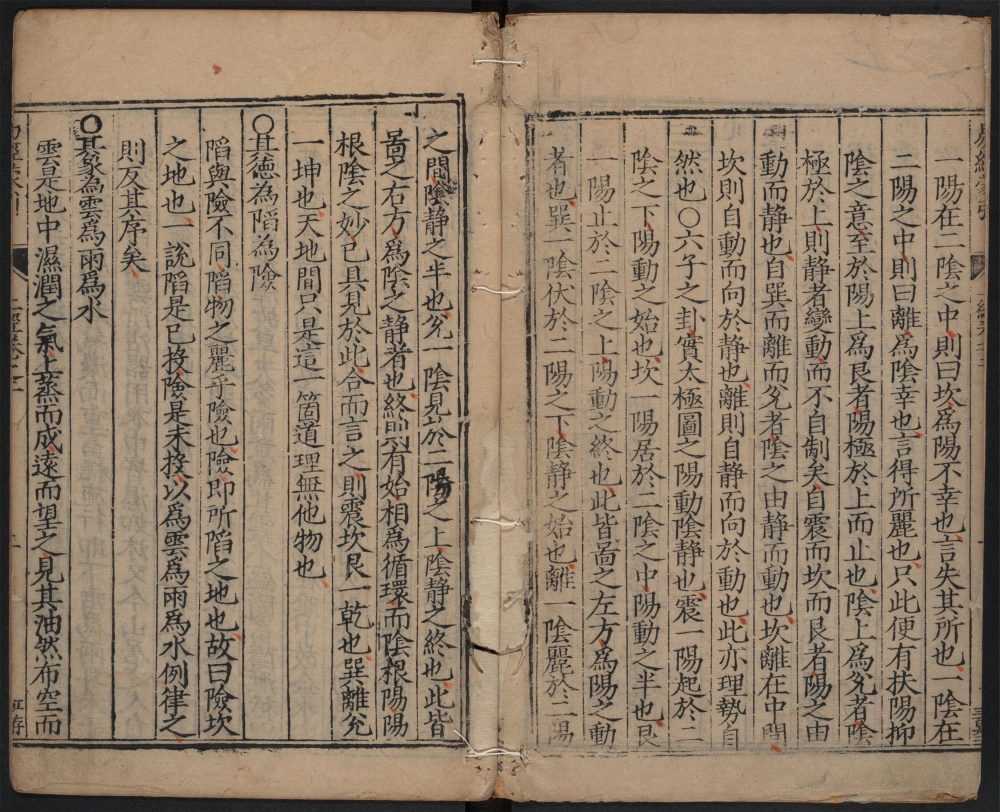 一陽在二陰之中則曰坎爲陽不幸也言失其所也一陰在
二陽之中則曰離爲陰幸也言得所麗也只此便有扶陽抑
陰之意至於陽上爲艮者陽極於上而止也陰上爲兌者陰
極於上則静者變動而不自制矣自震而坎而艮者陽之由
動而静也自巽而離而兌者陰之由静而動也坎離在中間
坎則自動而向於静也離則自静而向於動也此亦理勢自
然也○六子之卦實太極圖之陽動陰静也震一陽起於二
陰之下陽動之始也坎一陽居於二陰之中陽動之半也艮
一陽止於二陰之上陽動之終也此皆啚之左方爲陽之動
者也巽一陰伏於二陽之下陰静之始也離一陰麗於二陽
之間陰静之半也兌一陰見於二陽之上陰静之終也此皆
啚之右方爲陰之静者也終則有始相為循環而陰根陽陽
根陰之妙已具見於此合而言之則震坎艮一乾也巽離兌
一坤也天地間只是這一箇道理無他物也
○其德為陷為險
陷與險不同陷物之麗乎險也險即所陷之地也故曰險坎
之地也一說陷是已投險是未投以為雲為雨爲水例律之
則反其序矣
○其象為雲爲雨爲水
雲是地中濕潤之氣上蒸而成遠而望之見其油然布空而